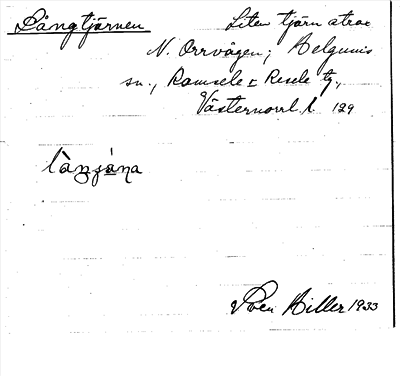 Långtjärnen
Liten tjärn strax
N. Orrvågen; Helgums
sn., Ramsele o Resele tg,
Västernorrl. l. 129
làŋʒá̱ɳa
Sven Hiller 1933